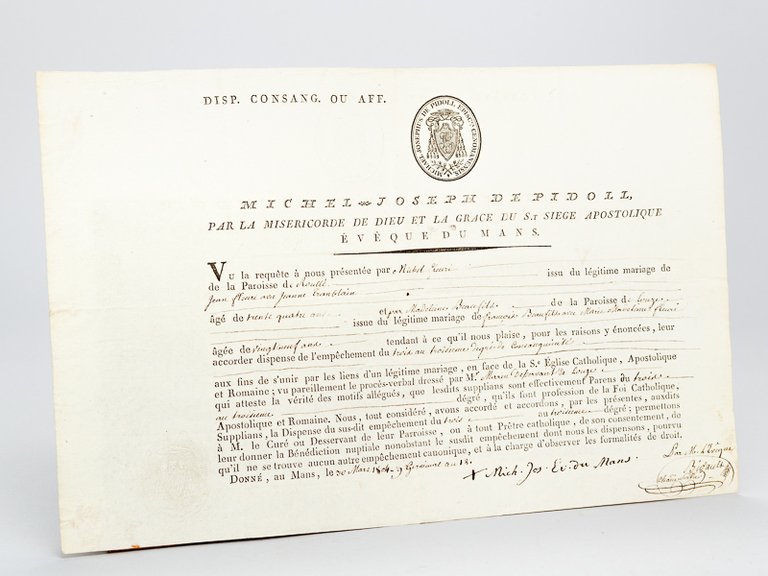 DISP. CONSANG. OU AFF.
MICHAEL JOSEPHUS DE PIDOLL EPISC. CENOMANENSIS
MICHEL-JOSEPH DE PIDOLL,
PAR LA MISERICORDE DE DIEU ET LA GRACE DU S.T SIEGE APOSTOLIQUE
ÉVÊQUE DU MANS.
VU la requête à nous présentée par Michel fleuri issu du légitime mariage de
de la Paroisse de Rouillé
Jean fleuri avec Jeanne Tranblain
âgé de trente quatre ans et par Madeleine Beaufils de la Paroisse de
issue du légitime mariage de françois Beaufils avec Marie Madeleine fleuri
âgée de vingt neuf ans tendant à ce qu'il nous plaise, pour les raisons y énoncées, leur
accorder dispense de l'empêchement du trois au troisieme degré de Consanguinité
aux fins de s'unir par les liens d'un légitime mariage, en face de la S.e Église Catholique, Apostolique
et Romaine; vu pareillement le procès-verbal dressé par M.r desservant de
qui atteste la vérité des motifs allégués, que lesdits supplians sont effectivement Parens du trois
au troisieme dégré, qu'ils font profession de la Foi Catholique,
Apostolique et Romaine. Nous, tout considéré, avons accordé et accordons, par les présentes, auxdits
Supplians, la Dispense du sus-dit empêchement du trois au troisieme dégré; permettons
à M. le Curé ou Desservant de leur Paroisse, ou à tout Prêtre catholique, de son consentement, de
leur donner la Bénédiction nuptiale nonobstant le susdit empêchement dont nous les dispensons, pourvu
qu'il ne se trouve aucun autre empêchement canonique, et à la charge d'observer les formalités de droit.
DONNÉ, au Mans, le 30 Mars 1804. 9 Germinal an 12.
+ Mich. Jos. Ev. du Mans.
Par M. l'Évêque